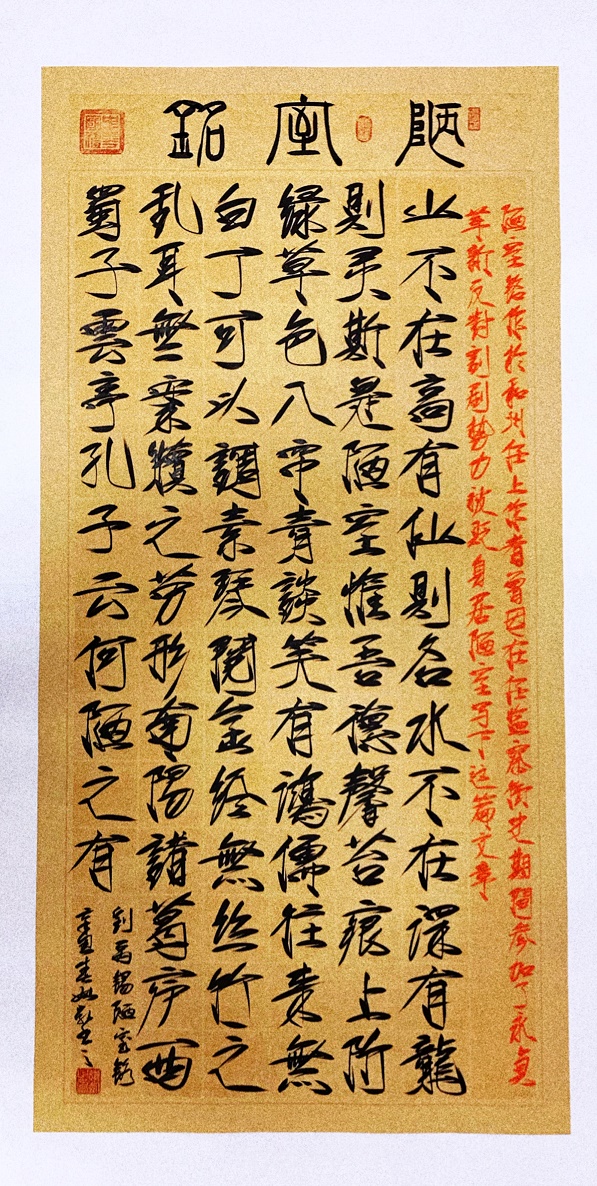 陋室銘
陋室銘作於和州任上作者曾因在任監察御史期間參加了永貞
革新反對割剧勢力被貶身居陋室写下这篇文章
山不在高有仙則名水不在深有龍
則灵斯是陋室惟吾德馨苔痕上階
緑草色入帘青談笑有鴻儒往来無
白丁可以調素琴閱金經無丝竹之
乱耳無案牘之劳形南陽諸葛庐西
蜀子雲亭孔子云何陋之有
刘禹錫陋室銘